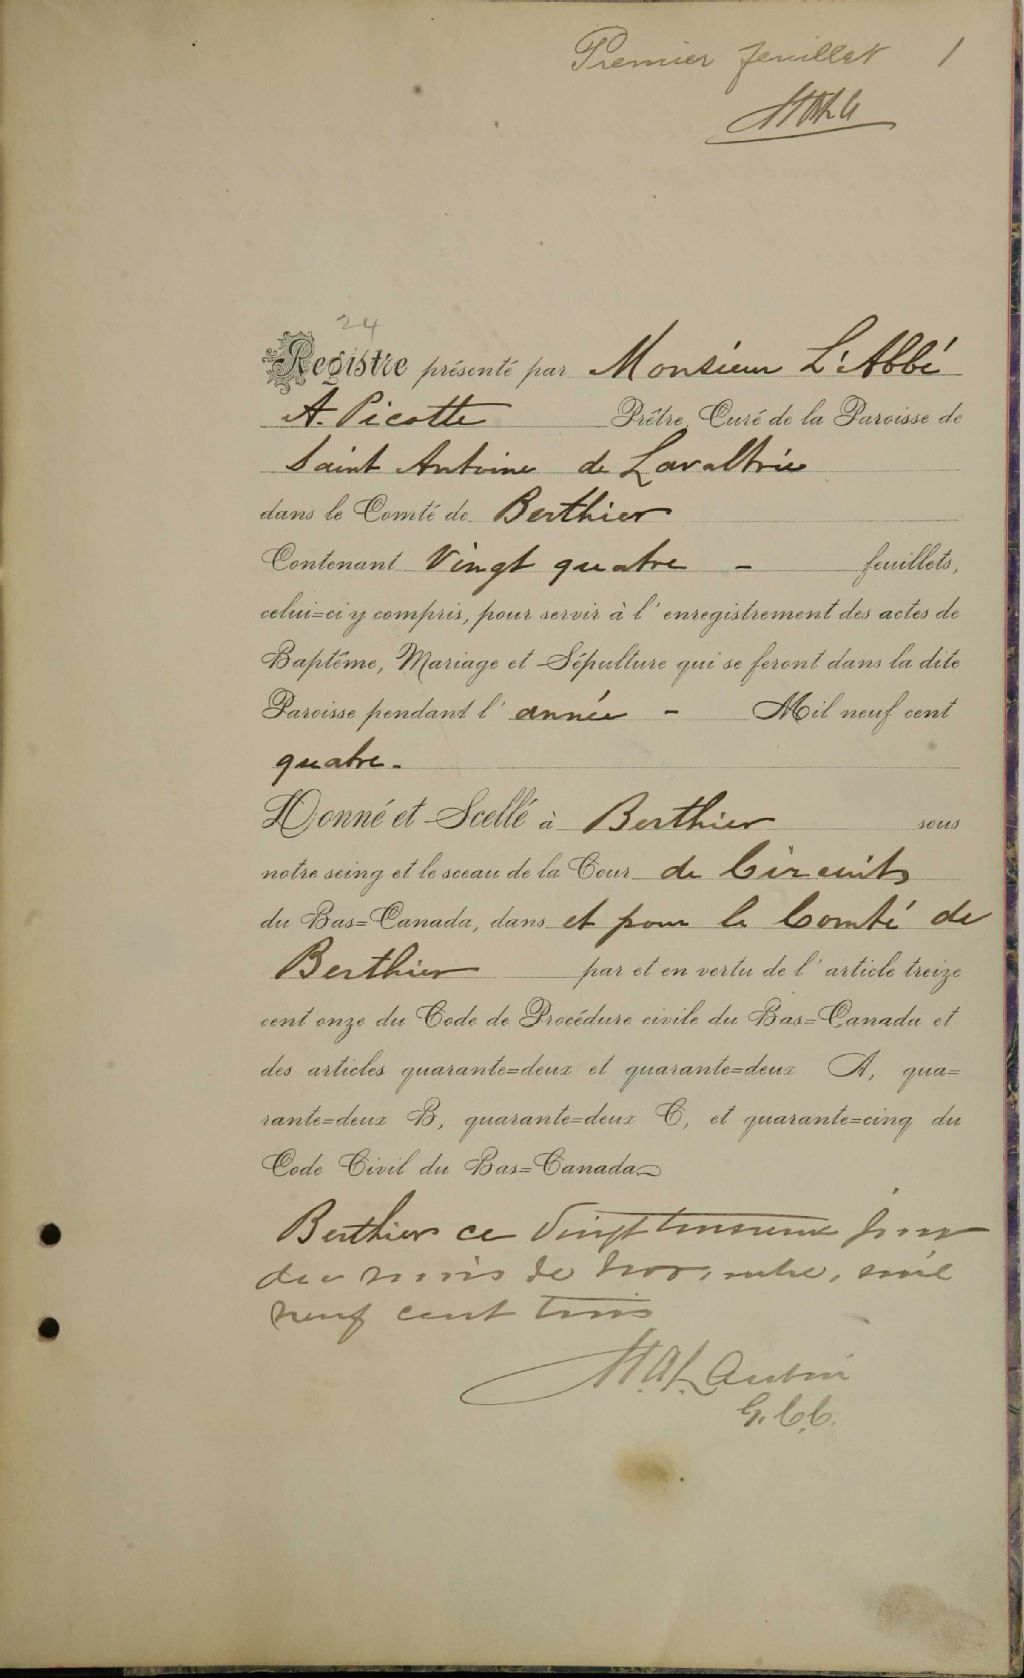 Premier feuillet 1
24
Registre présenté par Monsieur L'Abbé
A. Picotte Prêtre, Curé de la Paroisse de
Saint Antoine de Lavaltrie
dans le Comté de Berthier
Contenant Vingt quatre - feuillets,
celui=ci y compris, pour servir à l'enregistrement des actes de
Baptême, Mariage et Sépulture qui se feront dans la dite
Paroisse pendant l'année - Mil neuf cent
quatre.
Donné et Scellé à Berthier sous
notre seing et le sceau de la Cour de Circuit
du Bas=Canada, dans et pour le Comté de
Berthier par et en vertu de l'article treize
cent onze du Code de Procédure civile du Bas=Canada et
des articles quarante=deux et quarante=deux A, qua=
rante=deux B, quarante=deux C, et quarante=cinq du
Code Civil du Bas=Canada
Berthier ce Vingt jour
du mois de novembre, mil
neuf cent trois
G.C.C.